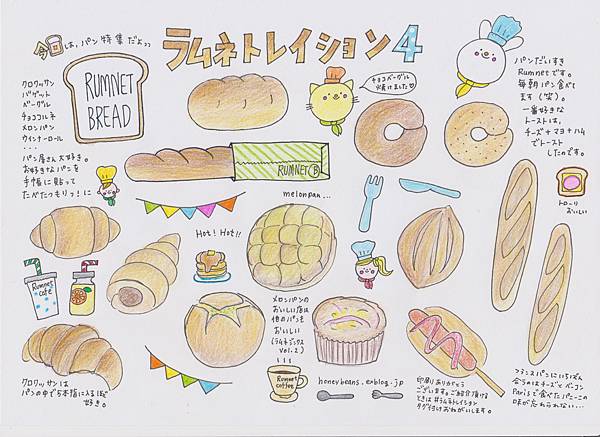 今は、パン特集だよっっ
ラムネトレイション4
RUMNET
BREAD
クロワッサン
バゲット
ベーグル
チョココルネ
メロンパン
ウインナーロール
・・・
パン屋さん大好き。
お好きなパンを
手帳に貼って
たべたつもりっ!に
チョコベーグル
焼けました♡
パンだいすき
Rumnetです。
毎朝パン食べて
ます(笑)。
一番好きな
トーストは、
チーズ+マヨ+ハム
でトースト
したのです。
トローリ
おいしい
RUMNET B
melonpan...
Hot! Hot!!
Rumnet
cafe
メロンパンの
おいしい店は
他のパンも
おいしい
(ラムネジックス
vol.2)
Rumnet
coffee
honeybeans.exblog.jp
クロワッサンは
パンの中で5本指に入るほど
好き。
印刷ありがとう
ございます。ご紹介頂ける
ときは#ラムネトレイション
タグ付けおねがいします。
フランスパンにいちばん
合うのはチーズとベーコン
Parisで食べたパニーニの
味が忘れられない...